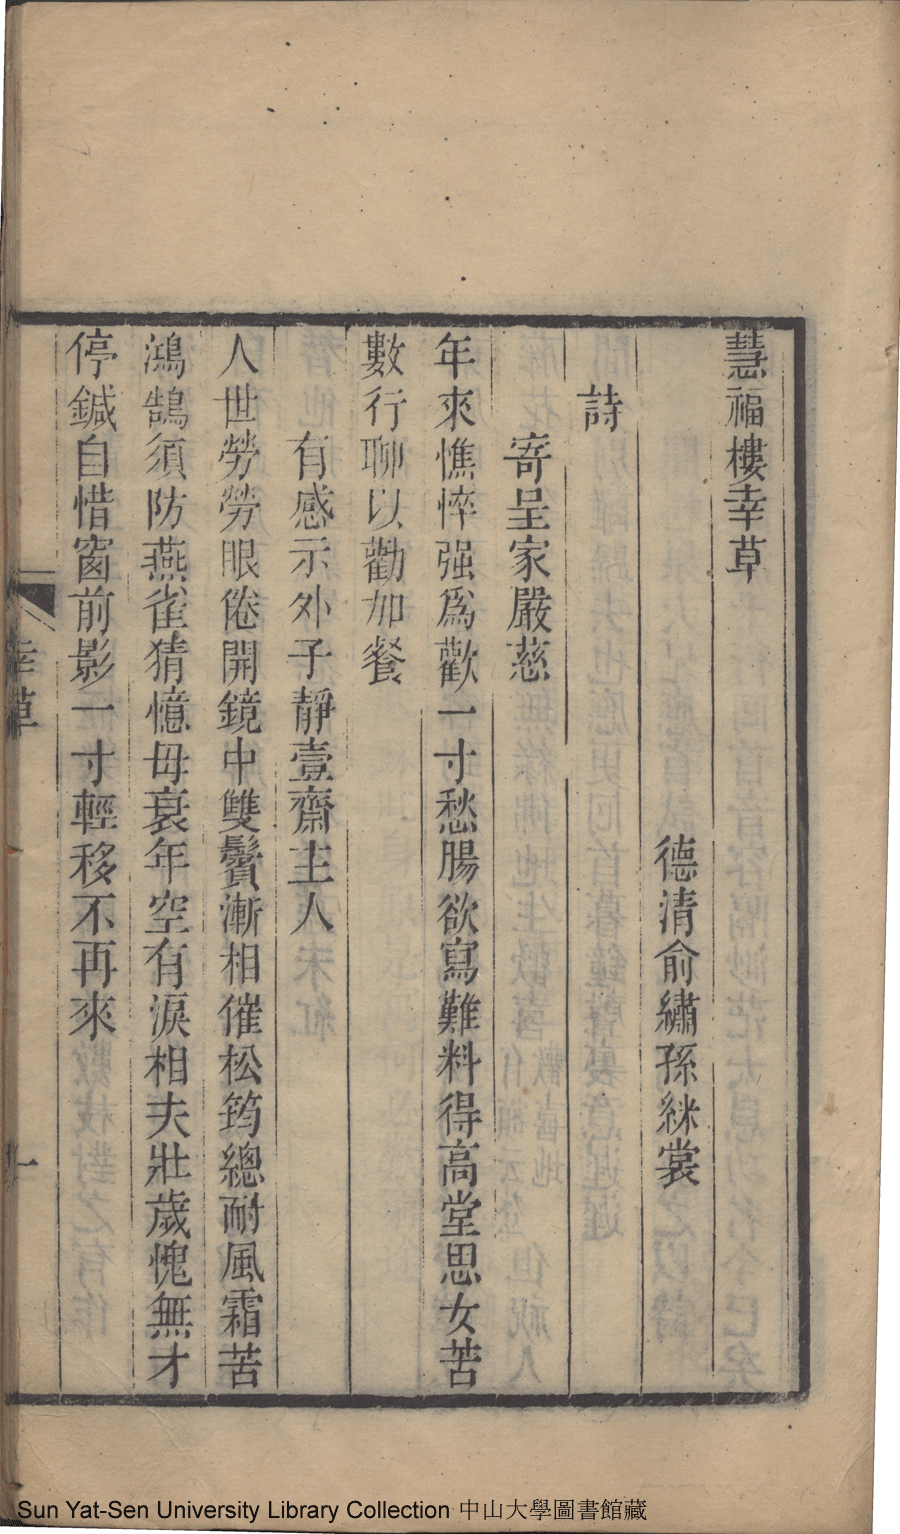 慧福樓幸草
德清俞繡孫綵裳
詩
寄呈家嚴慈
年來憔悴强爲歡一寸愁腸欲寫難料得高堂思女苦
數行聊以勸加餐
有感示外子靜壹齋主人
人世勞勞眼倦開鏡中雙鬢漸相催松筠總耐風霜苦
鴻鵠須防燕雀猜憶母衰年空有淚相夫壯歲愧無才
停鍼自惜窗前影一寸輕移不再來
幸草
一
Sun Yat-Sen University Library Collection 中山大學圖書館藏